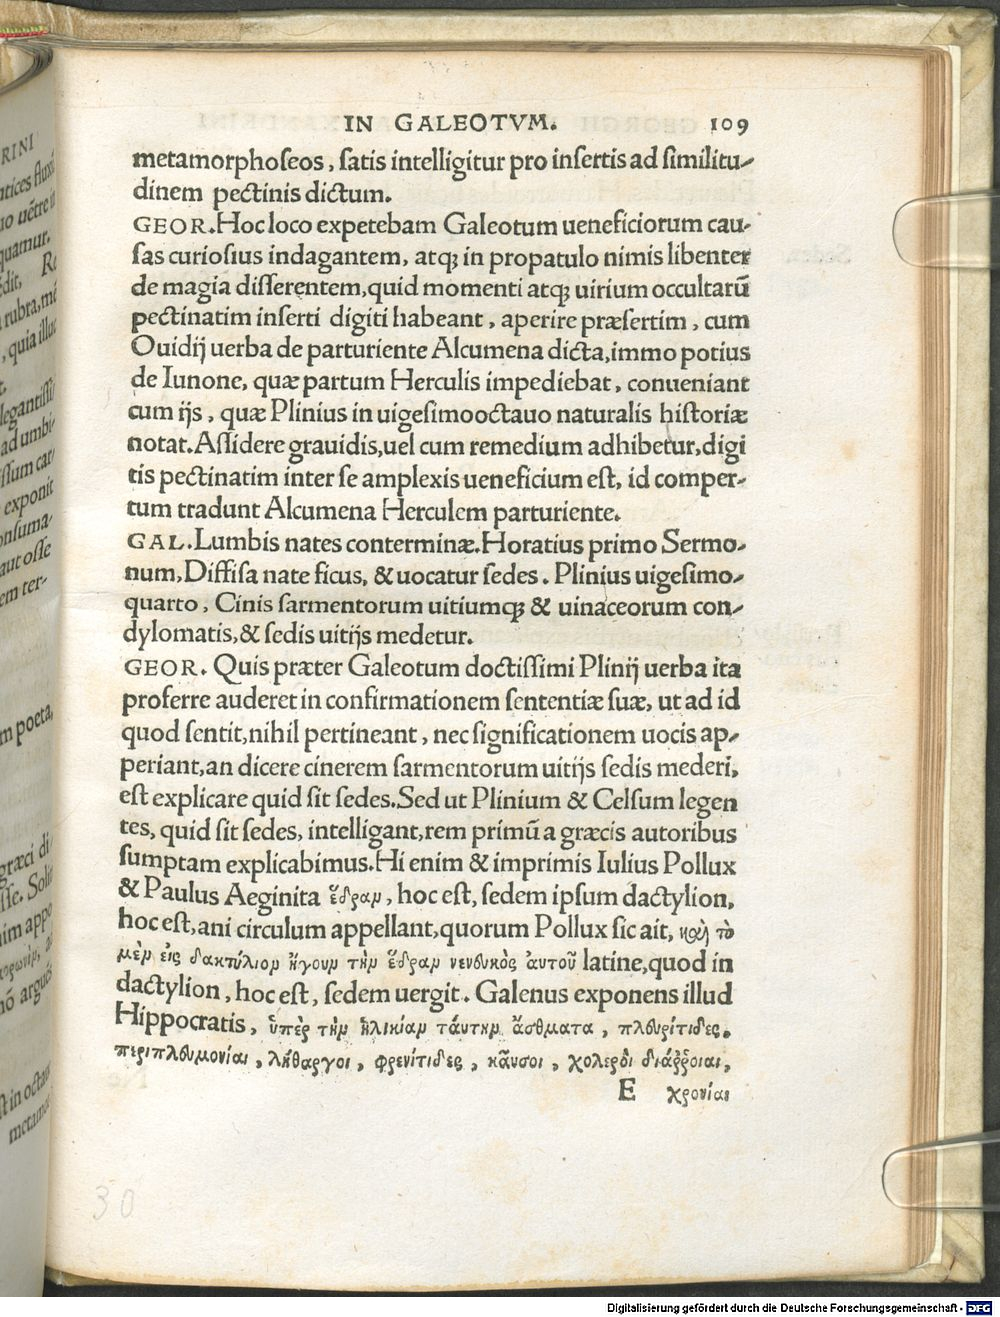 IN GALEOTVM. 109
metamorphoſeos, ſatis intelligitur pro inſertis ad ſimilitu-
dinem pectinis dictum.
GEOR. Hoc loco expetebam Galeotum ueneficiorum cau-
ſas curioſius indagantem, atq; in propatulo nimis libenter
de magia diſſerentem, quid momenti atq; uirium occultarū
pectinatim inſerti digiti habeant, aperire præſertim, cum
Ouidij uerba de parturiente Alcumena dicta, immo potius
de Iunone, quæ partum Herculis impediebat, conueniant
cum ijs, quæ Plinius in uigeſimooctauo naturalis hiſtoriæ
notat. Aſſidere grauidis, uel cum remedium adhibetur, digi
tis pectinatim inter ſe amplexis ueneficium eſt, id comper-
tum tradunt Alcumena Herculem parturiente.
GAL. Lumbis nates conterminæ. Horatius primo Sermo-
num, Diffiſa nate ficus, & uocatur ſedes. Plinius uigeſimo-
quarto, Cinis ſarmentorum uitiumq; & uinaceorum con-
dylomatis, & ſedis uitijs medetur.
GEOR. Quis præter Galeotum doctiſſimi Plinij uerba ita
proferre auderet in confirmationem ſententiæ ſuæ, ut ad id
quod ſentit, nihil pertineant, nec ſignificationem uocis ap-
periant, an dicere cinerem ſarmentorum uitijs ſedis mederi,
eſt explicare quid ſit ſedes. Sed ut Plinium & Celſum legen
tes, quid ſit ſedes, intelligant, rem primū a græcis autoribus
ſumptam explicabimus. Hi enim & imprimis Iulius Pollux
& Paulus Aeginita ἕδραν, hoc eſt, ſedem ipſum dactylion,
hoc eſt, ani circulum appellant, quorum Pollux ſic ait, καὶ τὸ
μὲν εἰς δακτύλιον ἤγουν τὴν ἕδραν νενευκὸς αὐτοῦ latine, quod in
dactylion, hoc eſt, ſedem uergit. Galenus exponens illud
Hippocratis, ὑπὲρ τὴν ἡλικίαν ταύτην ἄσθματα, πλευρίτιδες,
περιπλευμονίαι, λήθαργοι, φρενίτιδες, καῦσοι, χολεραὶ διάῤῥοιαι,
E χρονίαι
30
Digitalisierung gefördert durch die Deutsche Forschungsgemeinschaft - DFG